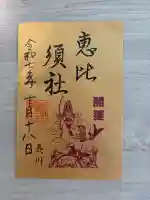 恵比
須社
開運
令和七年十一月十八日